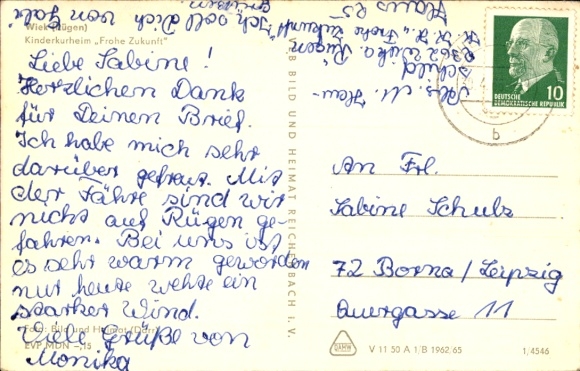 Wiek (Rügen)
Kinderkurheim „Frohe Zukunft"
Liebe Sabine!
Herzlichen Dank
für Deinen Brief.
Ich habe mich sehr
darüber gefreut. Mit
der Fähre sind wir
nicht auf Rügen ge-
fahren. Bei uns ist
es sehr warm geworden
nur heute wehte ein
starker Wind.
Viele Grüße von
Monika
Foto: Bild und Heimat (Darr)
EVP MDN -.15
"Ich soll dich von Gabi
grüßen"
VEB BILD UND HEIMAT REICHENBACH i. V.
Abs. M. Hau-
schild
2362 Wiek a. Rügen
K. K. H. „Frohe Zukunft"
Haus
DEUTSCHE
DEMOKRATISCHE REPUBLIK
10
b
An Frl.
Sabine Schulz
72 Borna/Leipzig
Quergasse 11
DAMW
V 11 50 A 1/B 1962/65
1/4546